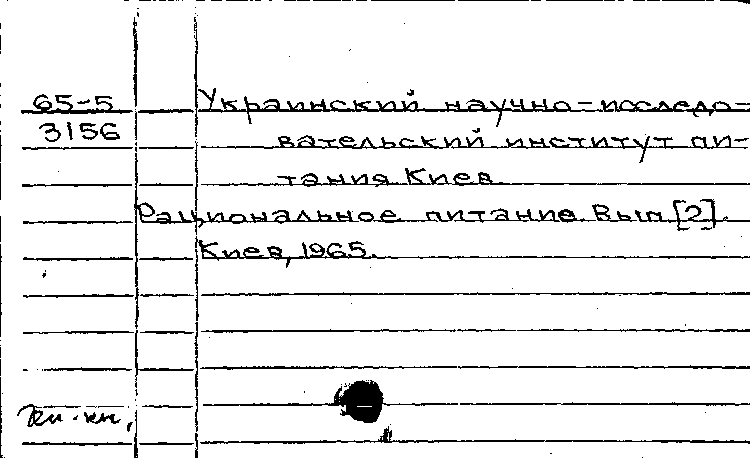 65-5 Украинский научно-исследо-
3156 вательский институт пи-
тания. Киев.
Рациональное питание. Вып [2].
Киев, 1965.